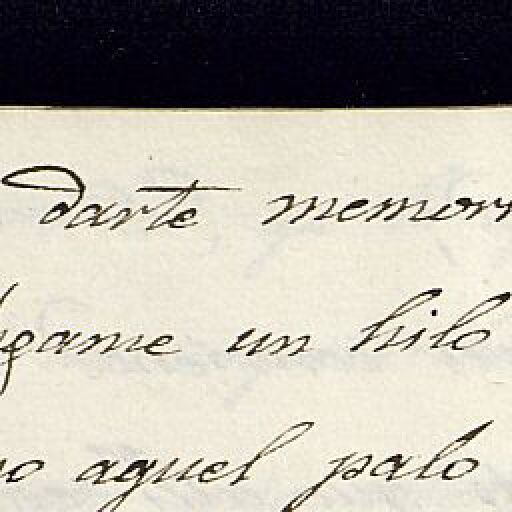 darte memor
game un hilo
o aquel palo